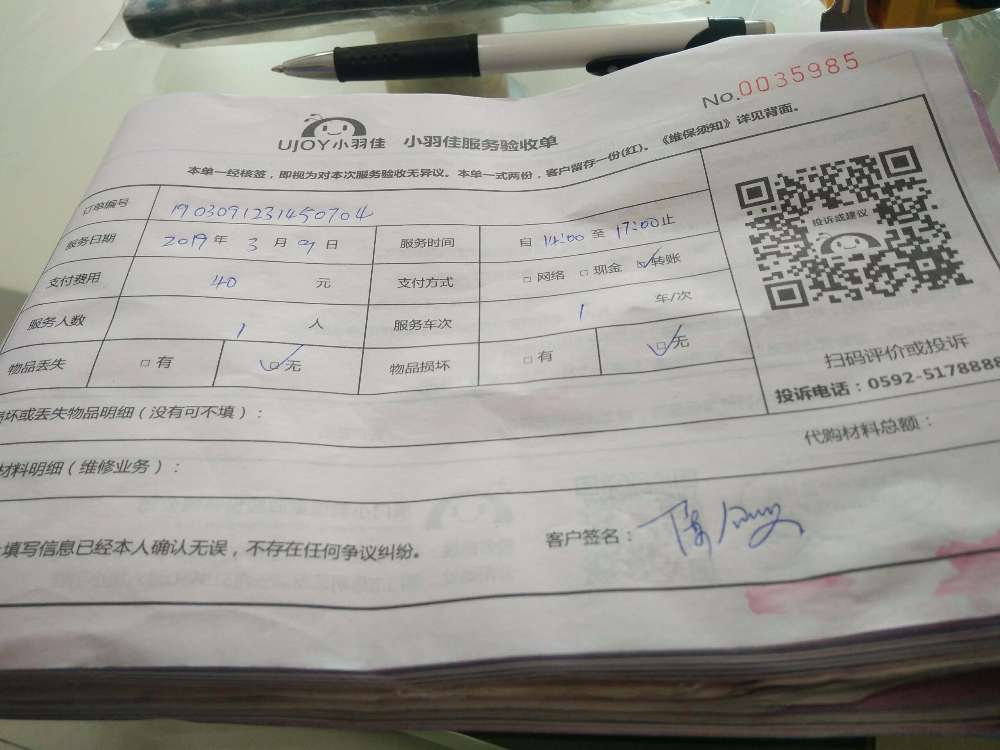 No.0035985
UJOY小羽佳 小羽佳服务验收单
本单一经核签，即视为对本次服务验收无异议。本单一式两份，客户留存一份(红)。《维保须知》详见背面。
订单编号 1903091231450704
服务日期 2019年 3月 9日 服务时间 自 14:00 至 17:00止
支付费用 40 元 支付方式 □网络 □现金 ☑转账
服务人数 1 人 服务车次 1 车/次
物品丢失 □有 ☑无 物品损坏 □有 ☑无
投诉或建议
扫码评价或投诉
投诉电话：0592-5178888
坏或丢失物品明细（没有可不填）：
材料明细（维修业务）： 代购材料总额：
填写信息已经本人确认无误，不存在任何争议纠纷。 客户签名：